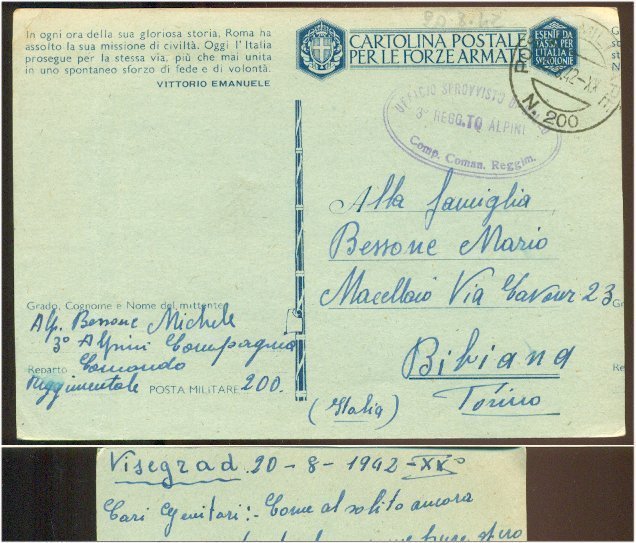 In ogni ora della sua gloriosa storia, Roma ha
assolto la sua missione di civiltà. Oggi l'Italia
prosegue per la stessa via, più che mai unita
in uno spontaneo sforzo di fede e di volontà.
VITTORIO EMANUELE
CARTOLINA POSTALE
PER LE FORZE ARMATE
ESENTE DA
TASSA PER
L'ITALIA E
SUE COLONIE
UFFICIO SPROVVISTO
3° REGG.TO ALPINI
Comp. Coman. Reggim.
42-XX
N. 200
Alla famiglia
Bessone Mario
Macellaio Via Cavour 23
Bibiana
Torino
(Italia)
Grado, Cognome e Nome del mittente
Alp. Bessone Michele
3° Alpini Compagnia
Reparto Comando
Reggimentale POSTA MILITARE 200.
Visegrad 20-8-1942-XX°
Cari Genitori:- Come al solito ancora